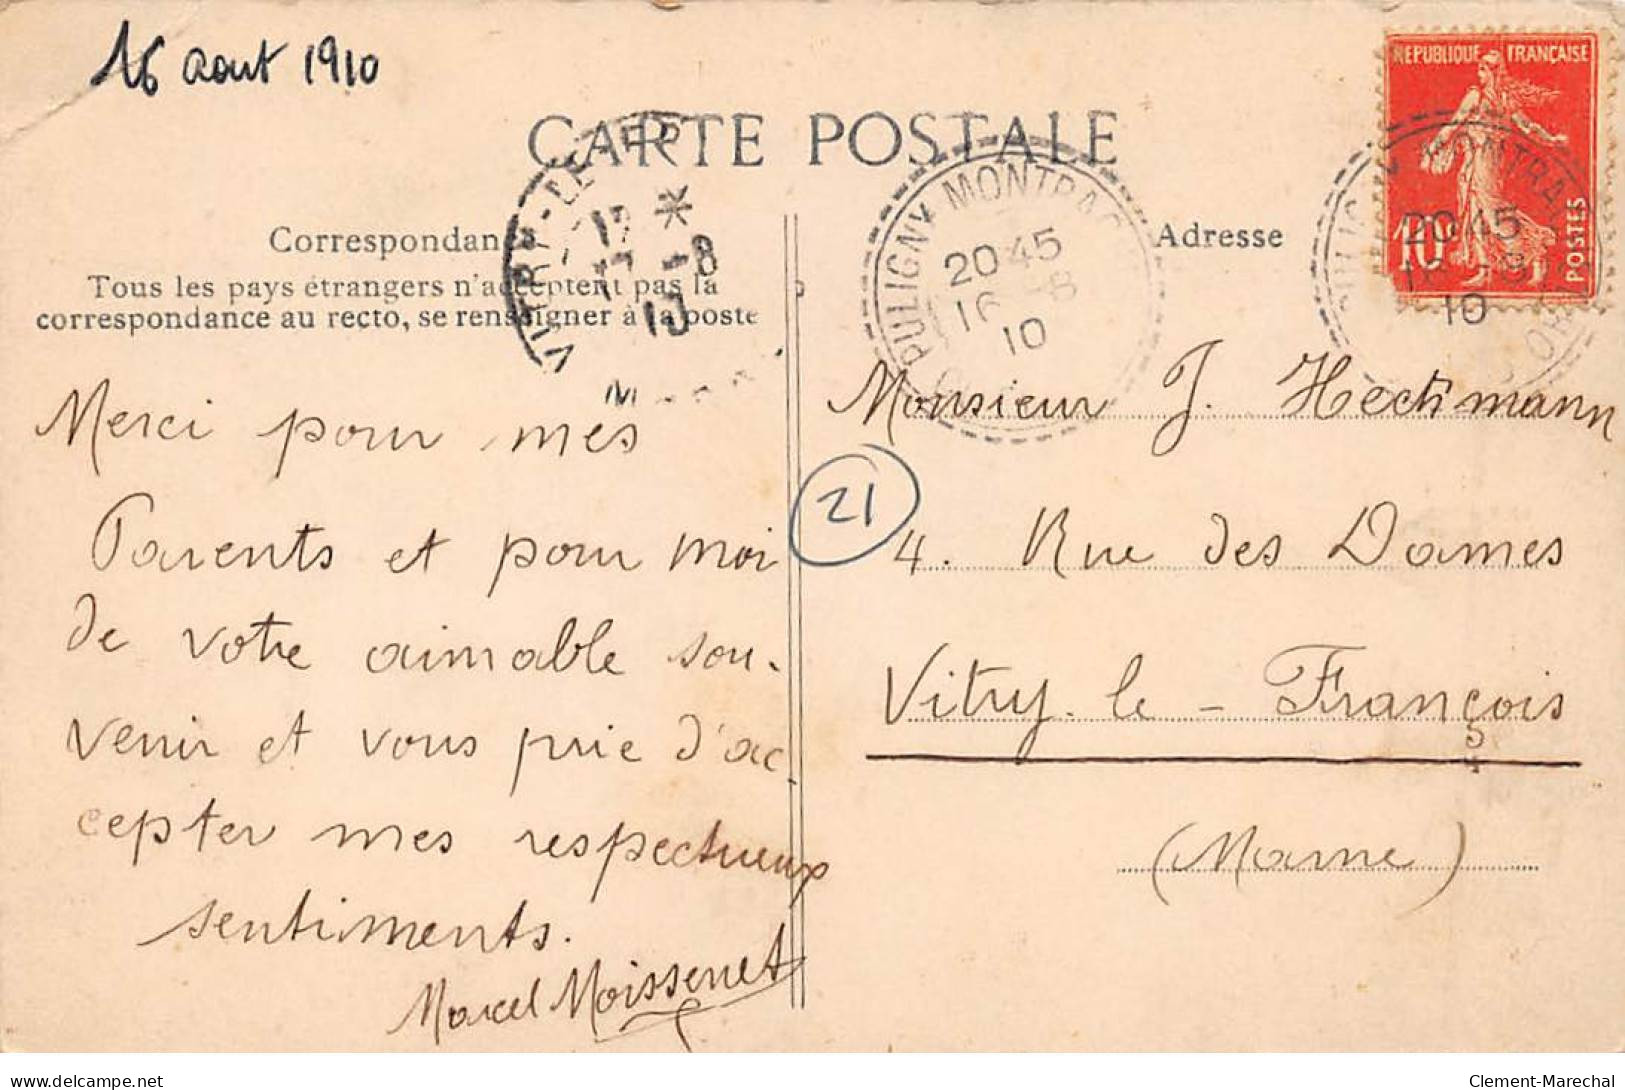 16 aout 1910
REPUBLIQUE FRANÇAISE
10c POSTES
CARTE POSTALE
Correspondance
Tous les pays étrangers n'acceptent pas la
correspondance au recto, se renseigner à la poste
Adresse
17 *
17 -8
10
PULIGNY MONTRAC
20 45
16 -8
10
20 45
10
Merci pour mes
Parents et pour moi
de votre aimable sou-
venir et vous prie d'ac-
cepter mes respectueux
sentiments.
Marcel Moissenet
21
Monsieur J. Heckmann
4. Rue des Dames
Vitry-le-François
(Marne)
delcampe.net
Clement-Marechal